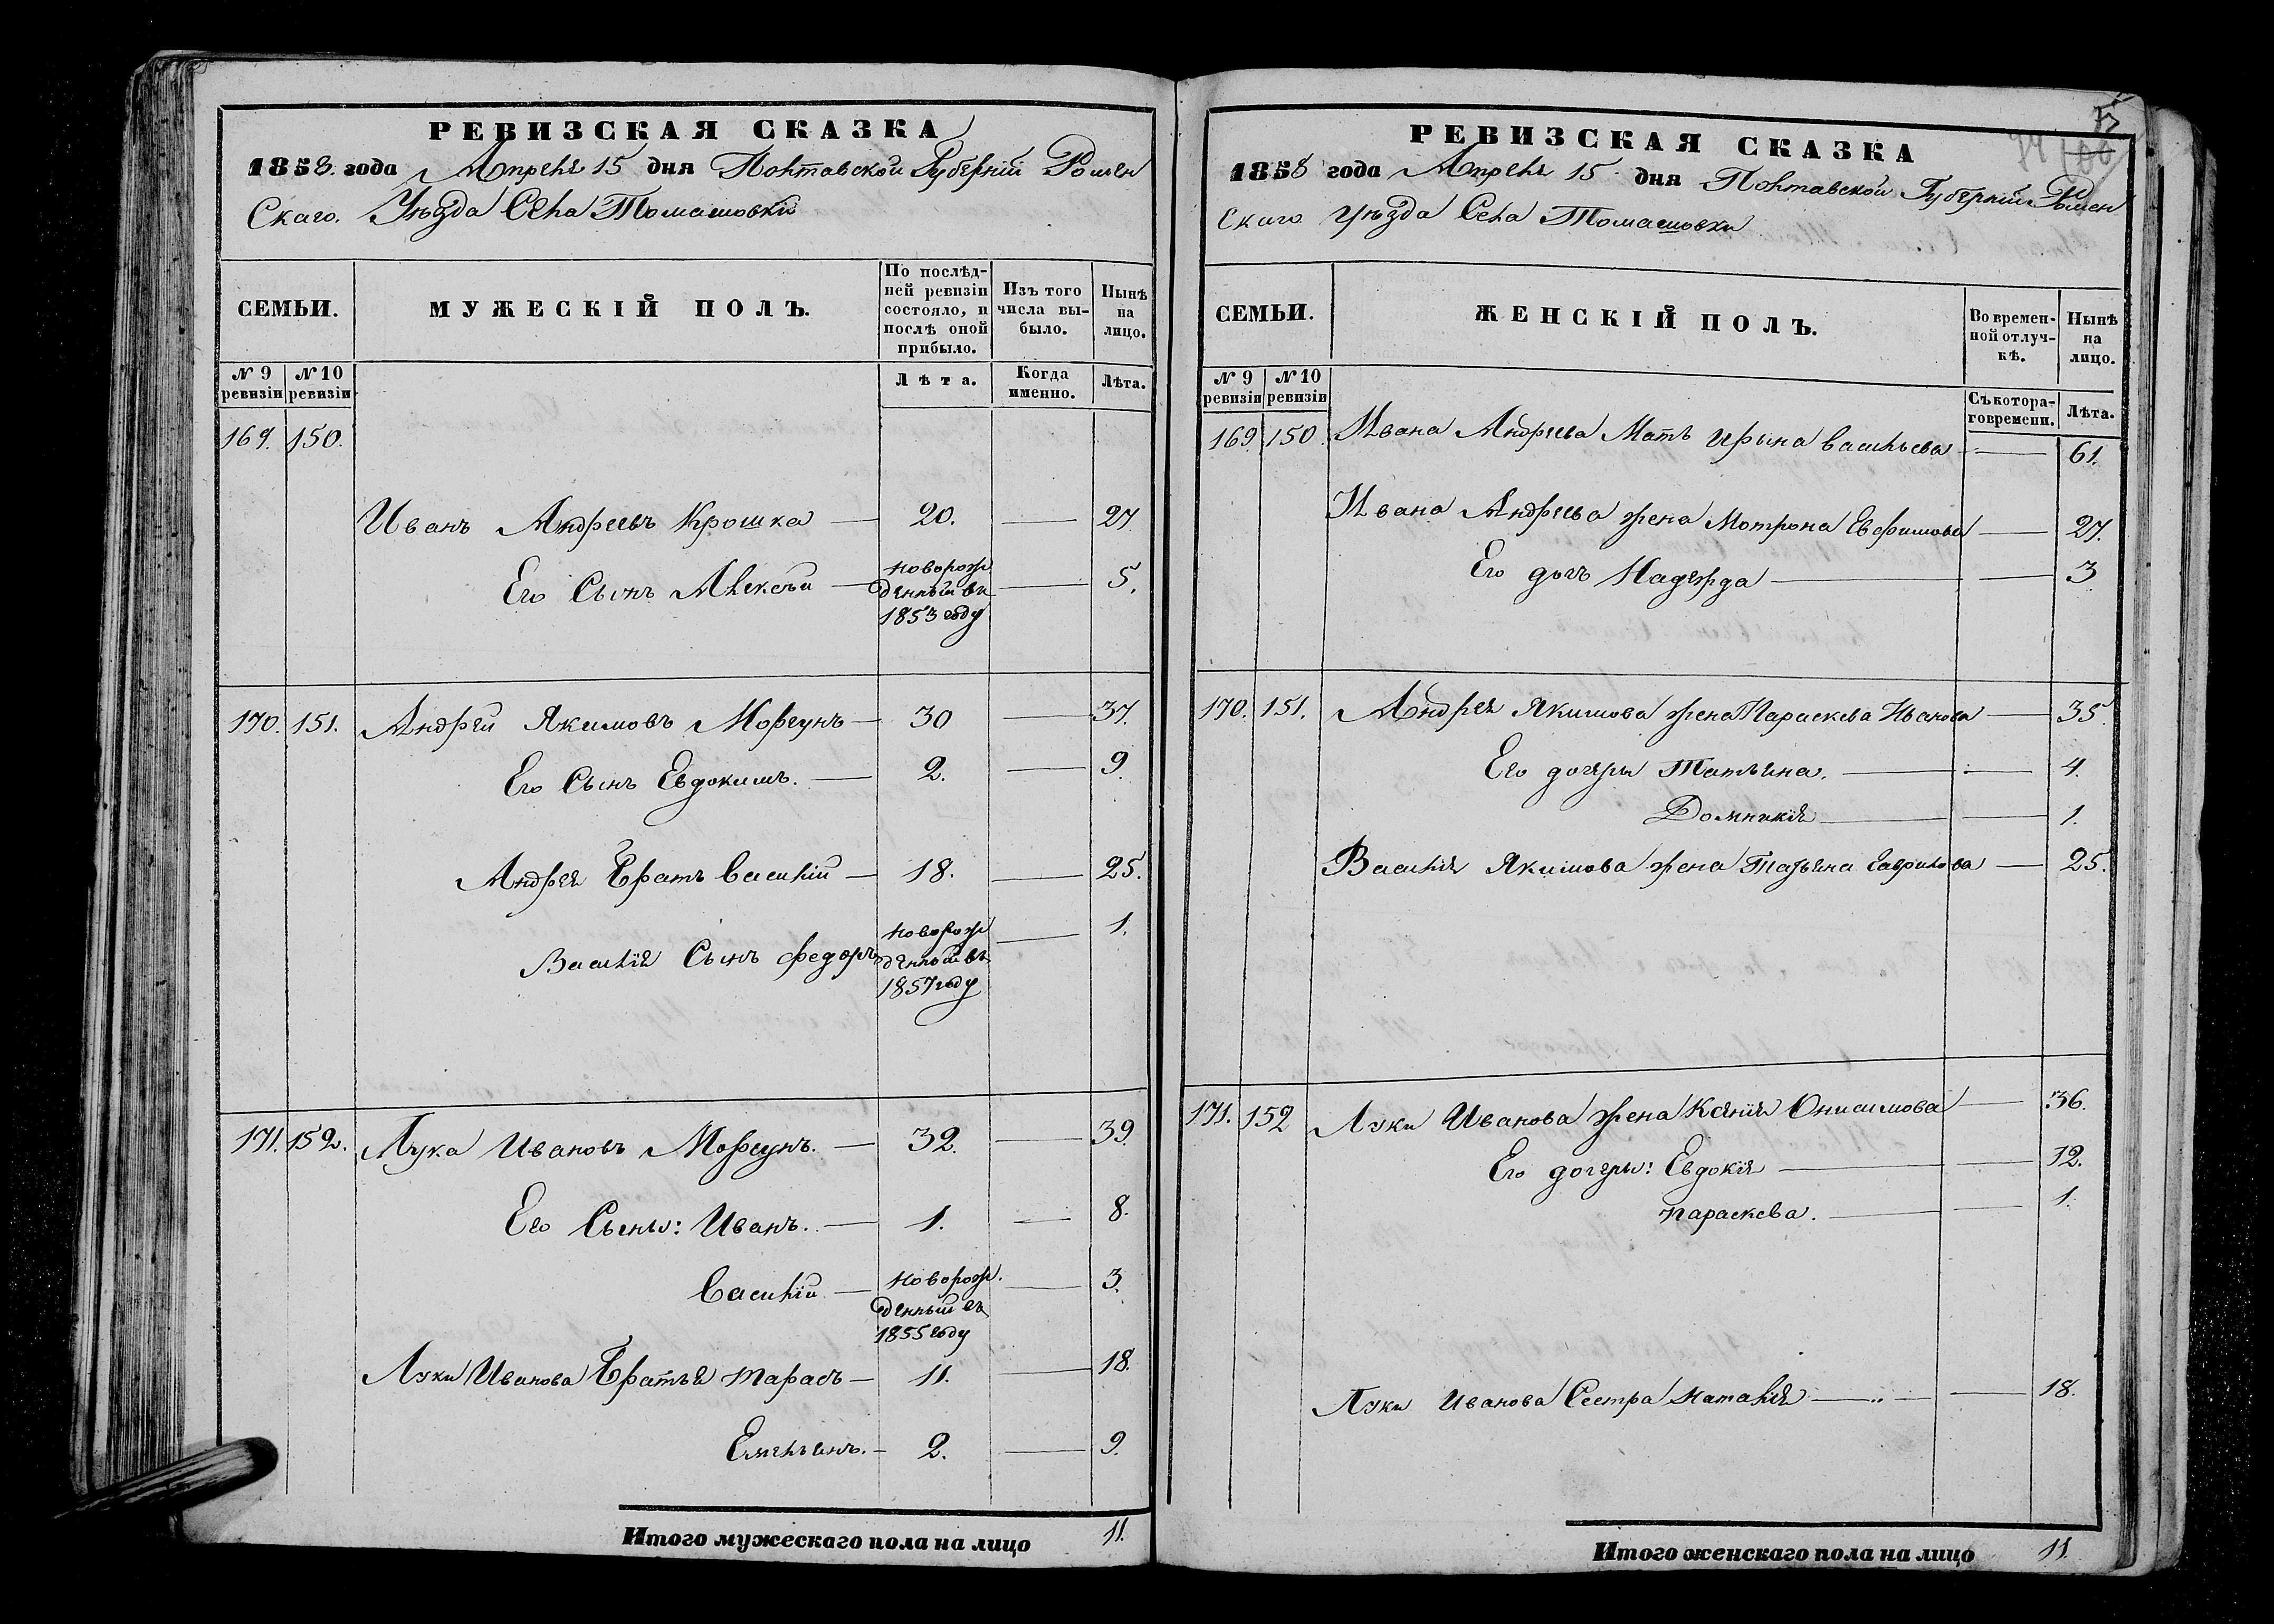 РЕВИЗСКАЯ СКАЗКА
1858. года Апреля 15 дня Полтавской Губерній Ромен
Скаго. Уѣзда Села Томашовки
СЕМЬИ.
МУЖЕСКІЙ ПОЛЪ.
По послѣд-
ней ревизіи
состояло, и
послѣ оной
прибыло.
Изъ того
числа вы-
было.
Нынѣ
на
лицо.
№ 9
ревизіи
№ 10
ревизіи
Лѣта.
Когда
именно.
Лѣта.
169. 150.
Иванъ Андреевъ Крошка — 20. — 27.
Его Сынъ Алексѣй — новорож
денный въ — 5.
1853 году
170. 151. Андрей Якимовъ Моргунъ — 30 — 37.
Его Сынъ Евдокимъ. — 2. — 9.
Андрея Братъ Василій — 18. — 25.
Василія Сынъ Федоръ новорож
денный въ — 1.
1857 году
171. 152. Лука Ивановъ Моргунъ. — 32. — 39.
Его Сыны: Иванъ. — 1. — 8.
Василій — новорож. — 3.
денный въ
1855 году
Луки Иванова Братья Тарасъ — 11. — 18.
Емельянъ. — 2. — 9.
Итого мужескаго пола на лицо 11.
РЕВИЗСКАЯ СКАЗКА
1858 года Апреля 15 дня Полтавской Губерніи Ромен
Скаго Уѣзда Села Томашовки
СЕМЬИ.
ЖЕНСКІЙ ПОЛЪ.
Во времен-
ной отлуч-
кѣ.
Нынѣ
на
лицо.
№ 9
ревизіи
№ 10
ревизіи
Съ котора-
го времени.
Лѣта.
169. 150. Ивана Андреева Мать Ирына Васильева — 61.
Ивана Андреева жена Мотрона Евфимова — 27.
Его дочь Надежда — — 3
170. 151. Андрея Якимова жена Параскева Иванова — 35.
Его дочери Татьяна. — — 4.
Домникія — — 1.
Василія Якимова жена Татьяна Гаврилова — 25.
171. 152 Луки Иванова жена Ксенія Онисимова — 36.
Его дочеры: Евдокія — — 12.
Параскева. — — 1.
Луки Иванова Сестра Наталія — — 18.
Итого женскаго пола на лицо 11.